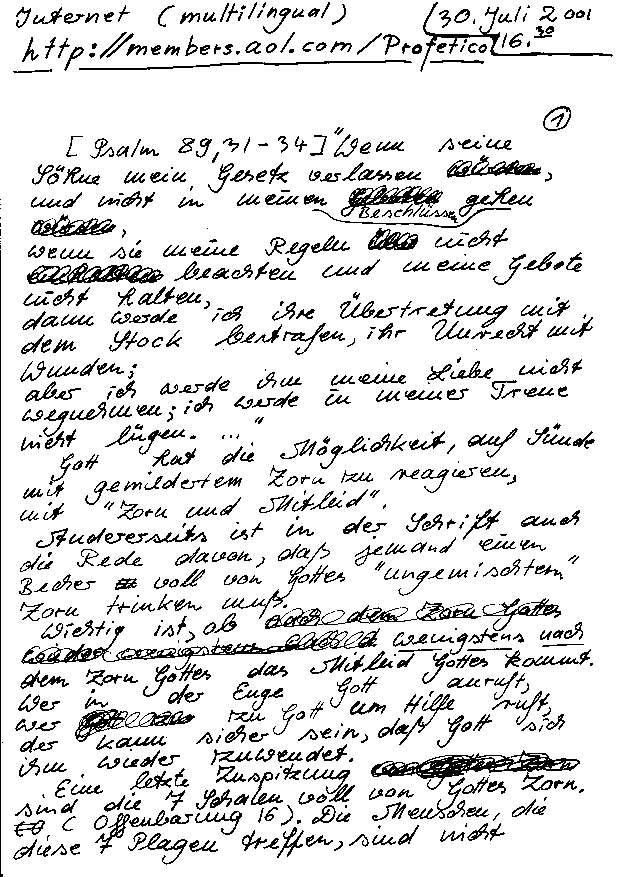 Internet (multilingual) 30. Juli 2001
http://members.aol.com/Profetico 16.30
1
[Psalm 89,31-34] "Wenn seine
Söhne mein Gesetz verlassen,
und nicht in meinen gehen
Beschlüssen
,
wenn sie meine Regeln nicht
beachten und meine Gebote
nicht halten,
dann werde ich ihre Übertretung mit
dem Stock bestrafen, ihr Unrecht mit
Wunden;
aber ich werde ihm meine Liebe nicht
wegnehmen; ich werde in meiner Treue
nicht lügen. ..."
Gott hat die Möglichkeit, auf Sünde
mit gemildertem Zorn zu reagieren,
mit "Zorn und Mitleid".
Andererseits ist in der Schrift auch
die Rede davon, daß jemand einen
Becher voll von Gottes "ungemischtem"
Zorn trinken muß.
Wichtig ist, ob nach dem Zorn Gottes
wenigstens nach
dem Zorn Gottes das Mitleid Gottes kommt.
Wer in der Enge Gott anruft,
wer zu Gott um Hilfe ruft,
der kann sicher sein, daß Gott sich
ihm wieder zuwendet.
Eine letzte Zuspitzung
sind die 7 Schalen voll von Gottes Zorn.
(Offenbarung 16). Die Menschen, die
diese 7 Plagen treffen, sind nicht